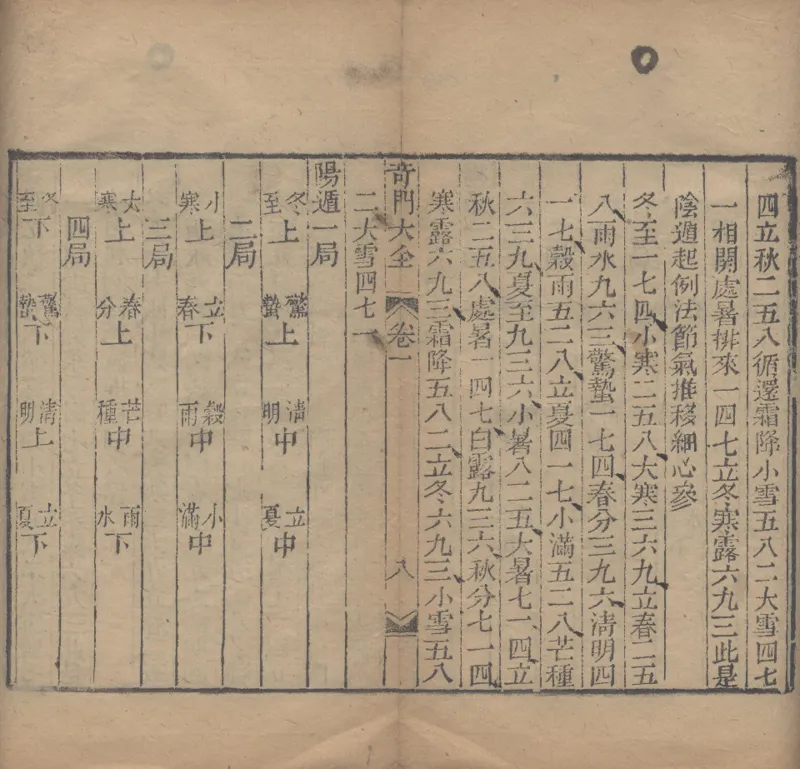 四立秋二五八循還霜降小雪五八二大雪四七
一相開處暑排來一四七立冬寒露六九三此是
陰遁起例法節氣推移細心參
冬至一七四小寒二五八大寒三六九立春二五
八雨水九六三驚蟄一七四春分三九六清明四
一七穀雨五二八立夏四一七小滿五二八芒種
六三九夏至九三六小暑八二五大暑七一四立
秋二五八處暑一四七白露九三六秋分七一四
寒露六九三霜降五八二立冬六九三小雪五八
奇門大全 卷一 八
二大雪四七一
陽遁一局
冬至上 驚蟄上 清明中 立夏中
二局
小寒上 立春下 穀雨中 小滿中
三局
大寒上 春分上 芒種中 雨水下
四局
冬至下 驚蟄下 清明上 立夏下